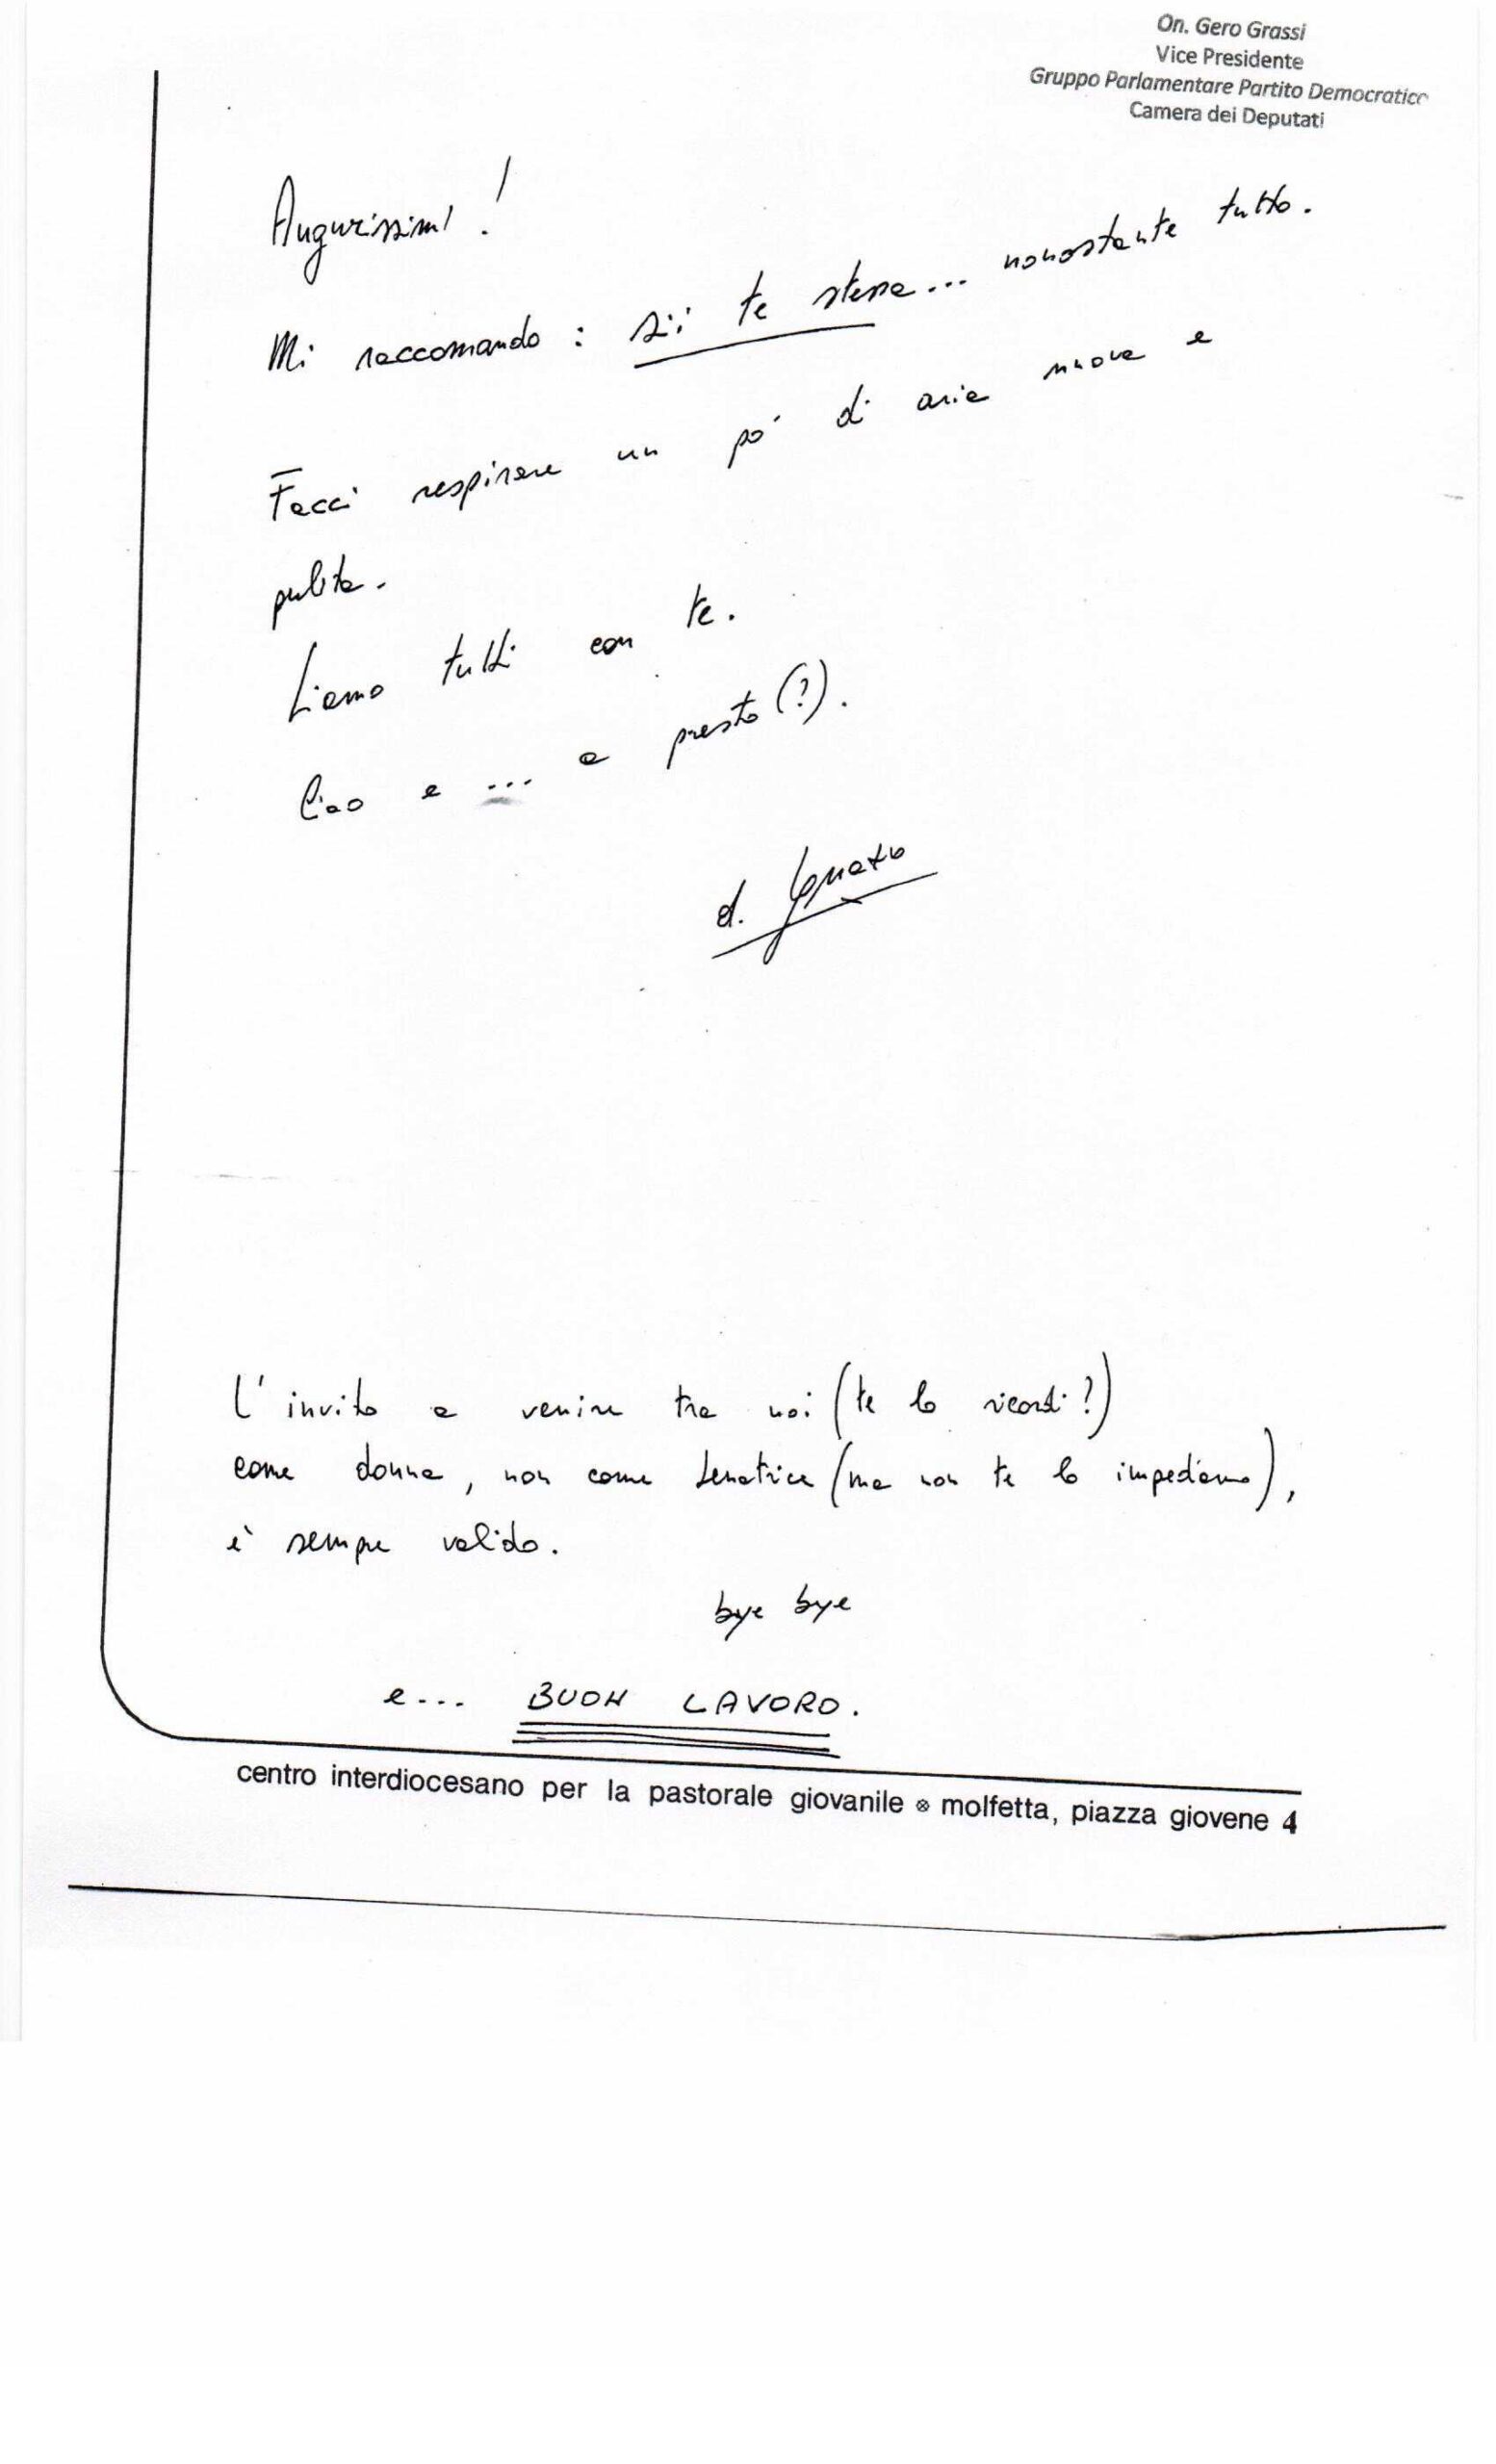 On. Gero Grassi
Vice Presidente
Gruppo Parlamentare Partito Democratico
Camera dei Deputati
Augurissimi!
Mi raccomando : sii te stessa... nonostante tutto.
Facci respirare un pò di aria nuova e
pulita.
Siamo tutti con te.
Ciao e ... a presto (?).
d. Ignazio
L'invito a venire tra noi (te lo ricordi?)
come donna, non come senatrice (ma non te lo impediamo),
è sempre valido.
bye bye
e... BUON LAVORO.
centro interdiocesano per la pastorale giovanile ⊗ molfetta, piazza giovene 4